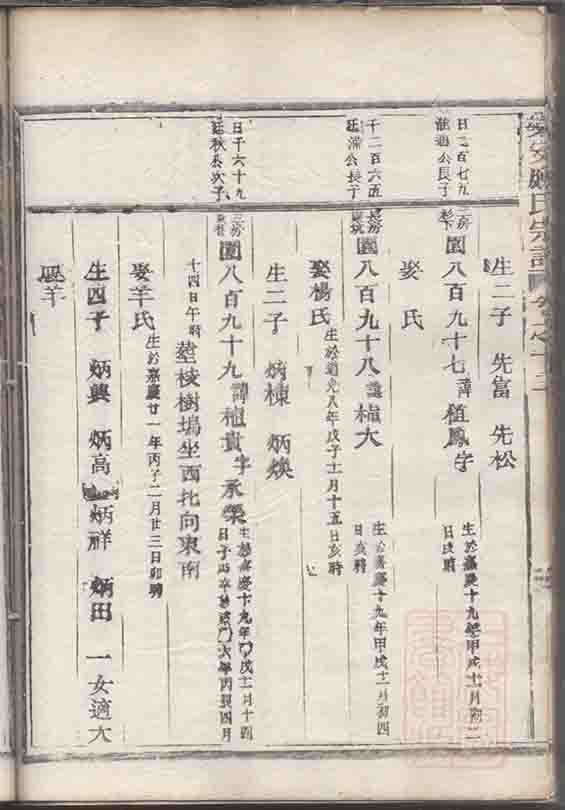 安氏宗譜
生二子 先富 先松
日二百七九
公長子
園八百九十七諱植鳳字
生於嘉慶十九年甲戌十一月初二
日亥時
娶 氏
千二百六五
廷滿公長子
園八百九十八諱植大
生於嘉慶十九年甲戌十一月初四
日亥時
娶楊氏
生於道光八年戊子十一月十五日亥時
生二子 炳棟 炳煥
日千六十九
廷秋公次子
園八百九十九諱植貴字承榮
生於嘉慶十九年甲戌十一月十四
日子時卒於咸豐六年丙辰四月
十四日午時
塟棱樹塢坐西北向東南
娶羊氏
生於嘉慶廿一年丙子二月廿三日卯時
生四子 炳興 炳高 炳祥 炳田 一女適大
墅羊